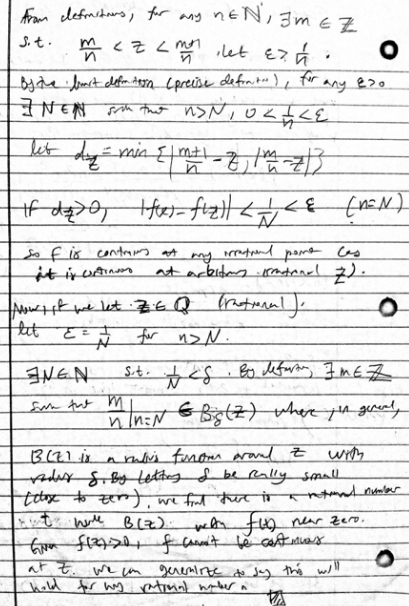 From definitions, for any n∈ℕ, ∃m∈ℤ
s.t. m/n < z < m+1/n. let ε ≥ 1/n.
By the limit definition (precise definition), for any ε>0
∃N∈ℕ such that n>N, 0<1/n<ε
let d_z = min {|m+1/n - z|, |m/n - z|}
If d_z>0, |f(x)-f(z)| < 1/N < ε (n=N)
so f is continuous at any irrational point (as
it is continuous at arbitrary irrational z).
Now, if we let z∈ℚ (rational).
let ε = 1/N for n>N.
∃N∈ℕ s.t. 1/N < δ. By definition, ∃m∈ℤ
such that m/n|n=N ∈ B_δ(z) where, in general,
B(z) is a radius function around z with
radius δ. By letting δ be really small
(close to zero), we find there is a rational number
t B(z) with f(t) near zero.
Given f(z)>0, f cannot be continuous
at z. we can generalize to say this will
hold for any rational number